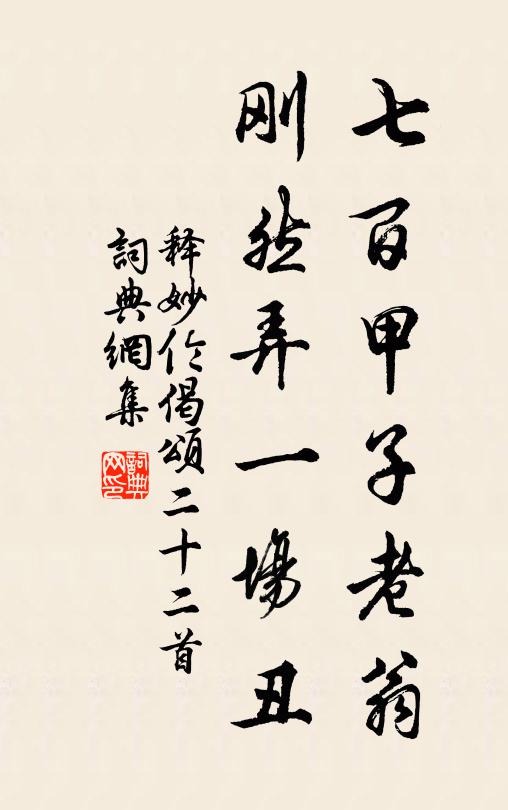 七百甲子老翁
刚然弄一場丑
释妙伦偈頌二十二首
詞典網集
詞典网印